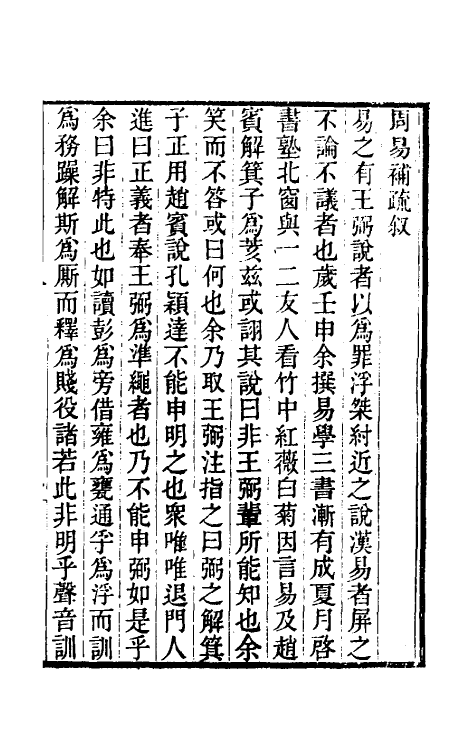 周易補疏叙
易之有王弼說者以爲罪浮桀紂近之說漢易者屏之
不論不議者也歲壬申余撰易學三書漸有成夏月啓
書塾北窗與一二友人看竹中紅薇白菊因言易及趙
賓解箕子爲荄茲或詡其說曰非王弼輩所能知也余
笑而不答或曰何也余乃取王弼注指之曰弼之解箕
子正用趙賓說孔穎達不能申明之也衆唯唯退門人
進曰正義者奉王弼爲準繩者也乃不能申弼如是乎
余曰非特此也如讀彭爲旁借雍爲甕通孚爲浮而訓
爲務躁解斯爲厮而釋爲賤役諸若此非明乎聲音訓